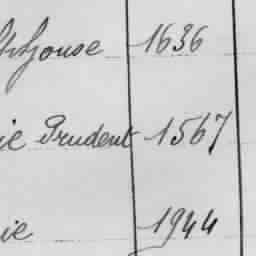 Alphonse 1636
ie Prudent 1567
ie 1944